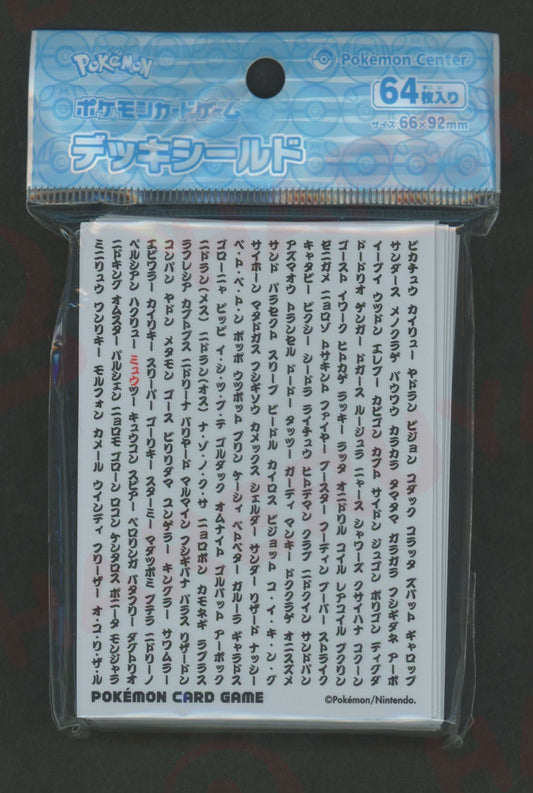 Pokémon
Pokémon Center
ポケモンカードゲーム
64枚入り
まいい
サイズ:66×92mm
デッキシールド
ピカチュウ カイリュー ヤドラン ピジョン コダック コラッタ ズバット ギャロップ
サンダース メノクラゲ パウワウ カラカラ タマタマ ガラガラ フシギダネ アーボ
イーブイ ウツドン エレブー カビゴン カブト サイドン ジュゴン ポリゴン ディグダ
ドードリオ ゲンガー ドガース ルージュラ ニャース シャワーズ クサイハナ コクーン
ゴースト イワーク ヒトカゲ ラッキー ラッタ オニドリル コイル レアコイル プクリン
ゼニガメ ニョロゾ トサキント ファイヤー ブースター フーディン ブーバー ストライク
キャタピー ピクシー シードラ ライチュウ ヒトデマン クラブ ニドクイン サンドパン
アズマオウ トランセル ドードー タッツー ガーディ マンキー ドククラゲ オニスズメ
サンド パラセクト スリープ ビードル カイロス ピジョット コ・イ・キ・ン・グ
サイホーン マタドガス フシギソウ カメックス シェルダー サンダー リザード ナッシー
ベ・ト・ベ・ト・ン ポッポ ウツボット プリン ケーシィ ベトベター ガルーラ ギャラドス
ゴローニャ ピッピ イ・シ・ツ・ブ・テ ゴルダック オムナイト ゴルバット アーボック
ニドラン(メス) ニドラン(オス) ナ・ゾ・ノ・ク・サ ニョロボン カモネギ ラプラス
ラフレシア カブトプス ニドリーナ バリヤード マルマイン フシギバナ パラス リザードン
コンパン ヤドン メタモン ゴース ビリリダマ ユンゲラー キングラー サワムラー
エビワラー カイリキー スリーパー ゴーリキー スターミー マダツボミ プテラ ニドリーノ
ペルシアン ハクリュー ミュウツー キュウコン スピアー ベロリンガ バタフリー ダグトリオ
ニドキング オムスター パルシェン ニョロモ ゴローン ロコン ケンタロス ポニータ モンジャラ
ミニリュウ ワンリキー モルフォン カメール ウインディ フリーザー オ・コ・リ・ザ・ル
POKÉMON CARD GAME
©Pokémon/Nintendo.